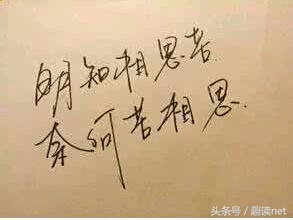 明知相思苦.
奈何苦相思.
头条号 / 趣读net